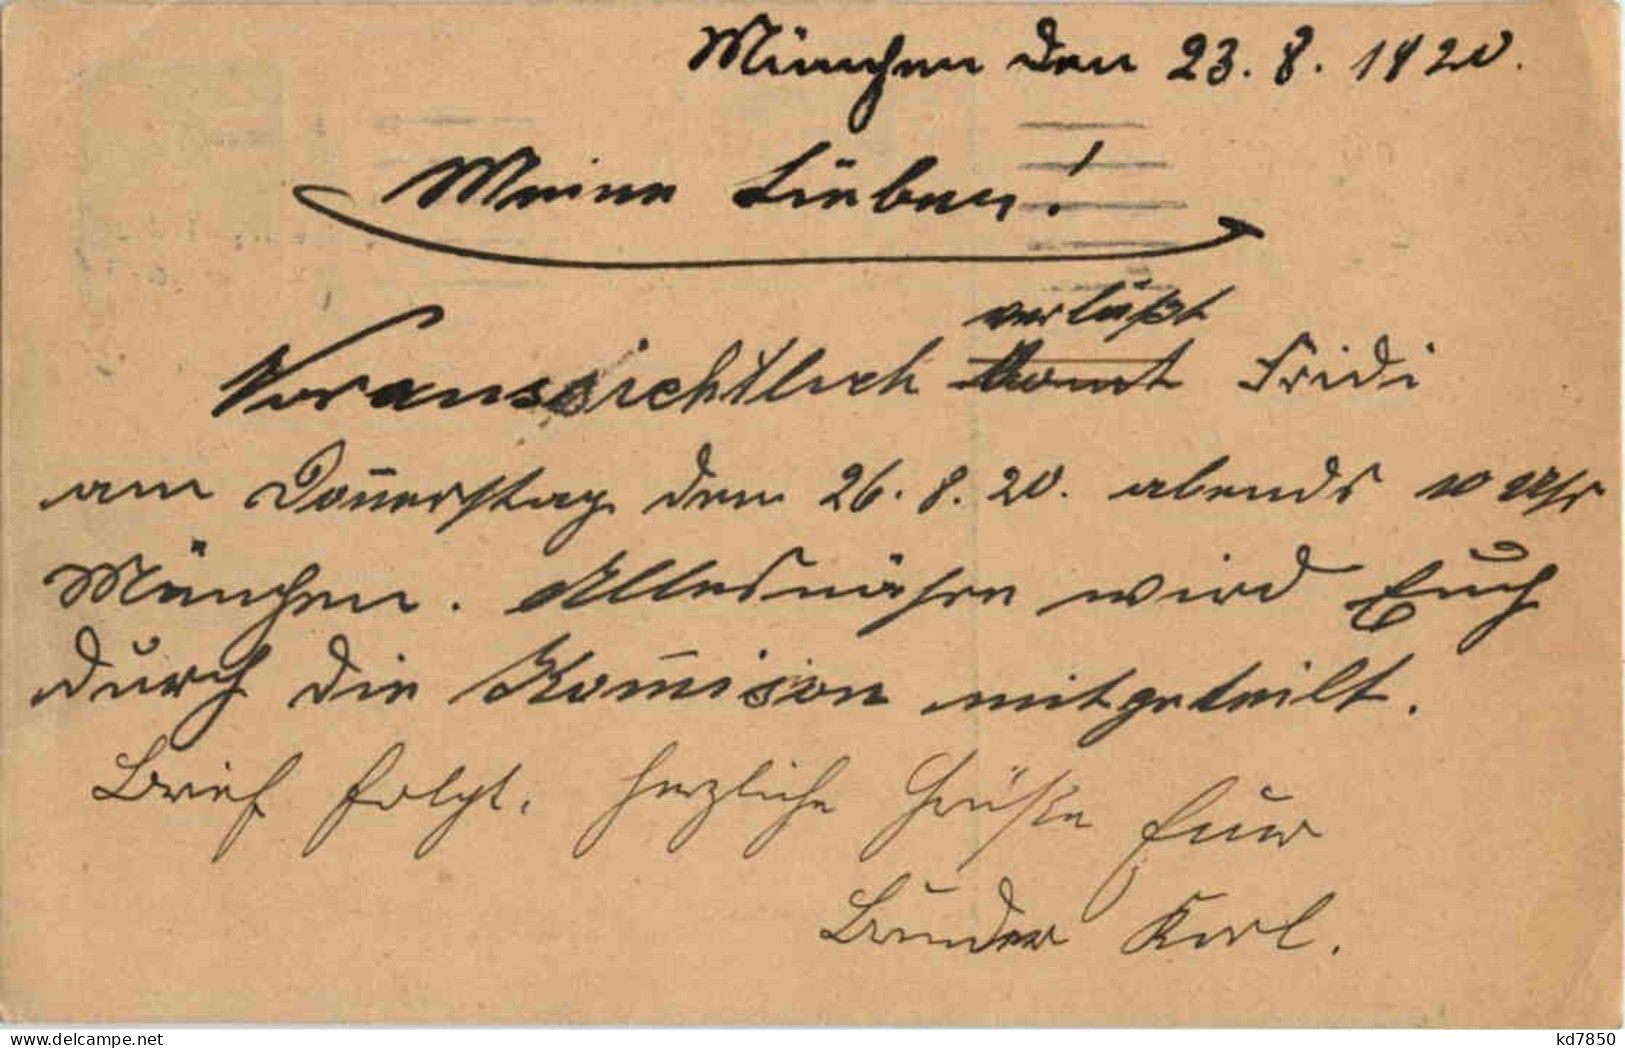 München den 23. 8. 1920.
Meine Lieben!
verläßt
Voraussichtlich komt Fridi
am Doñerstag den 26. 8. 20. abends 10 Uhr
München. Allesnähre wird Euch
durch die Kom̅ision mitgeteilt.
Brief folgt. Herzliche Grüße Euer
Bruder Karl.
kd7850